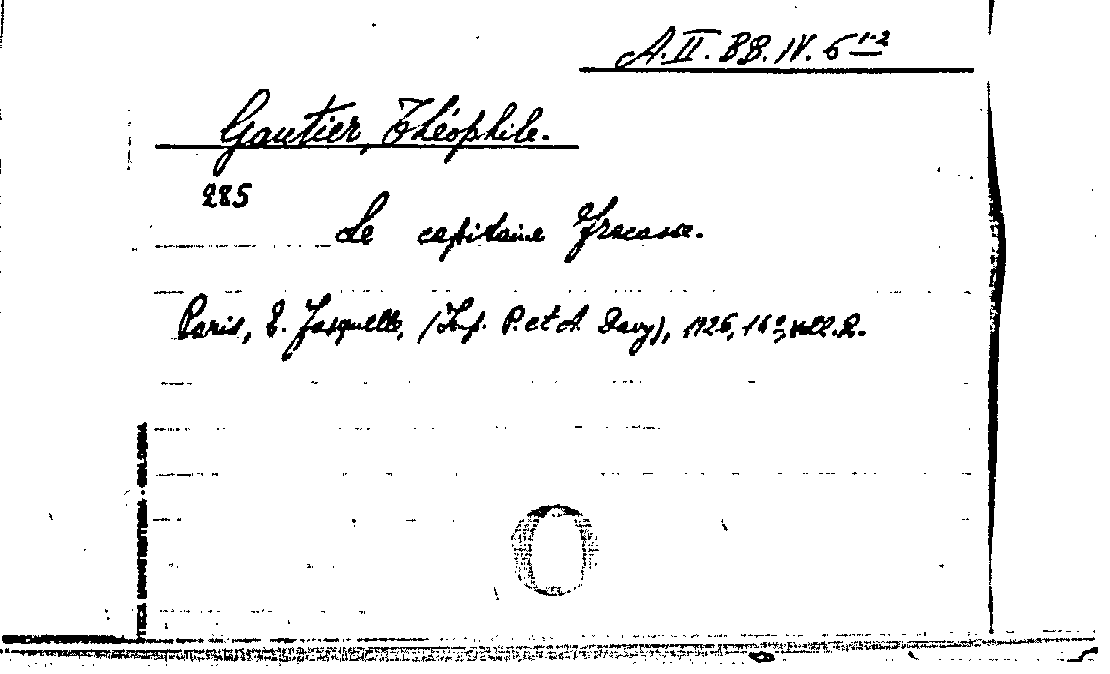 A.II.BB.IV.6 1-2
Gautier, Théophile.
285
Le capitaine Fracasse.
Paris, E. Fasquelle, (Imp. P. et A. Davy), 1926, 16°, voll. 2.